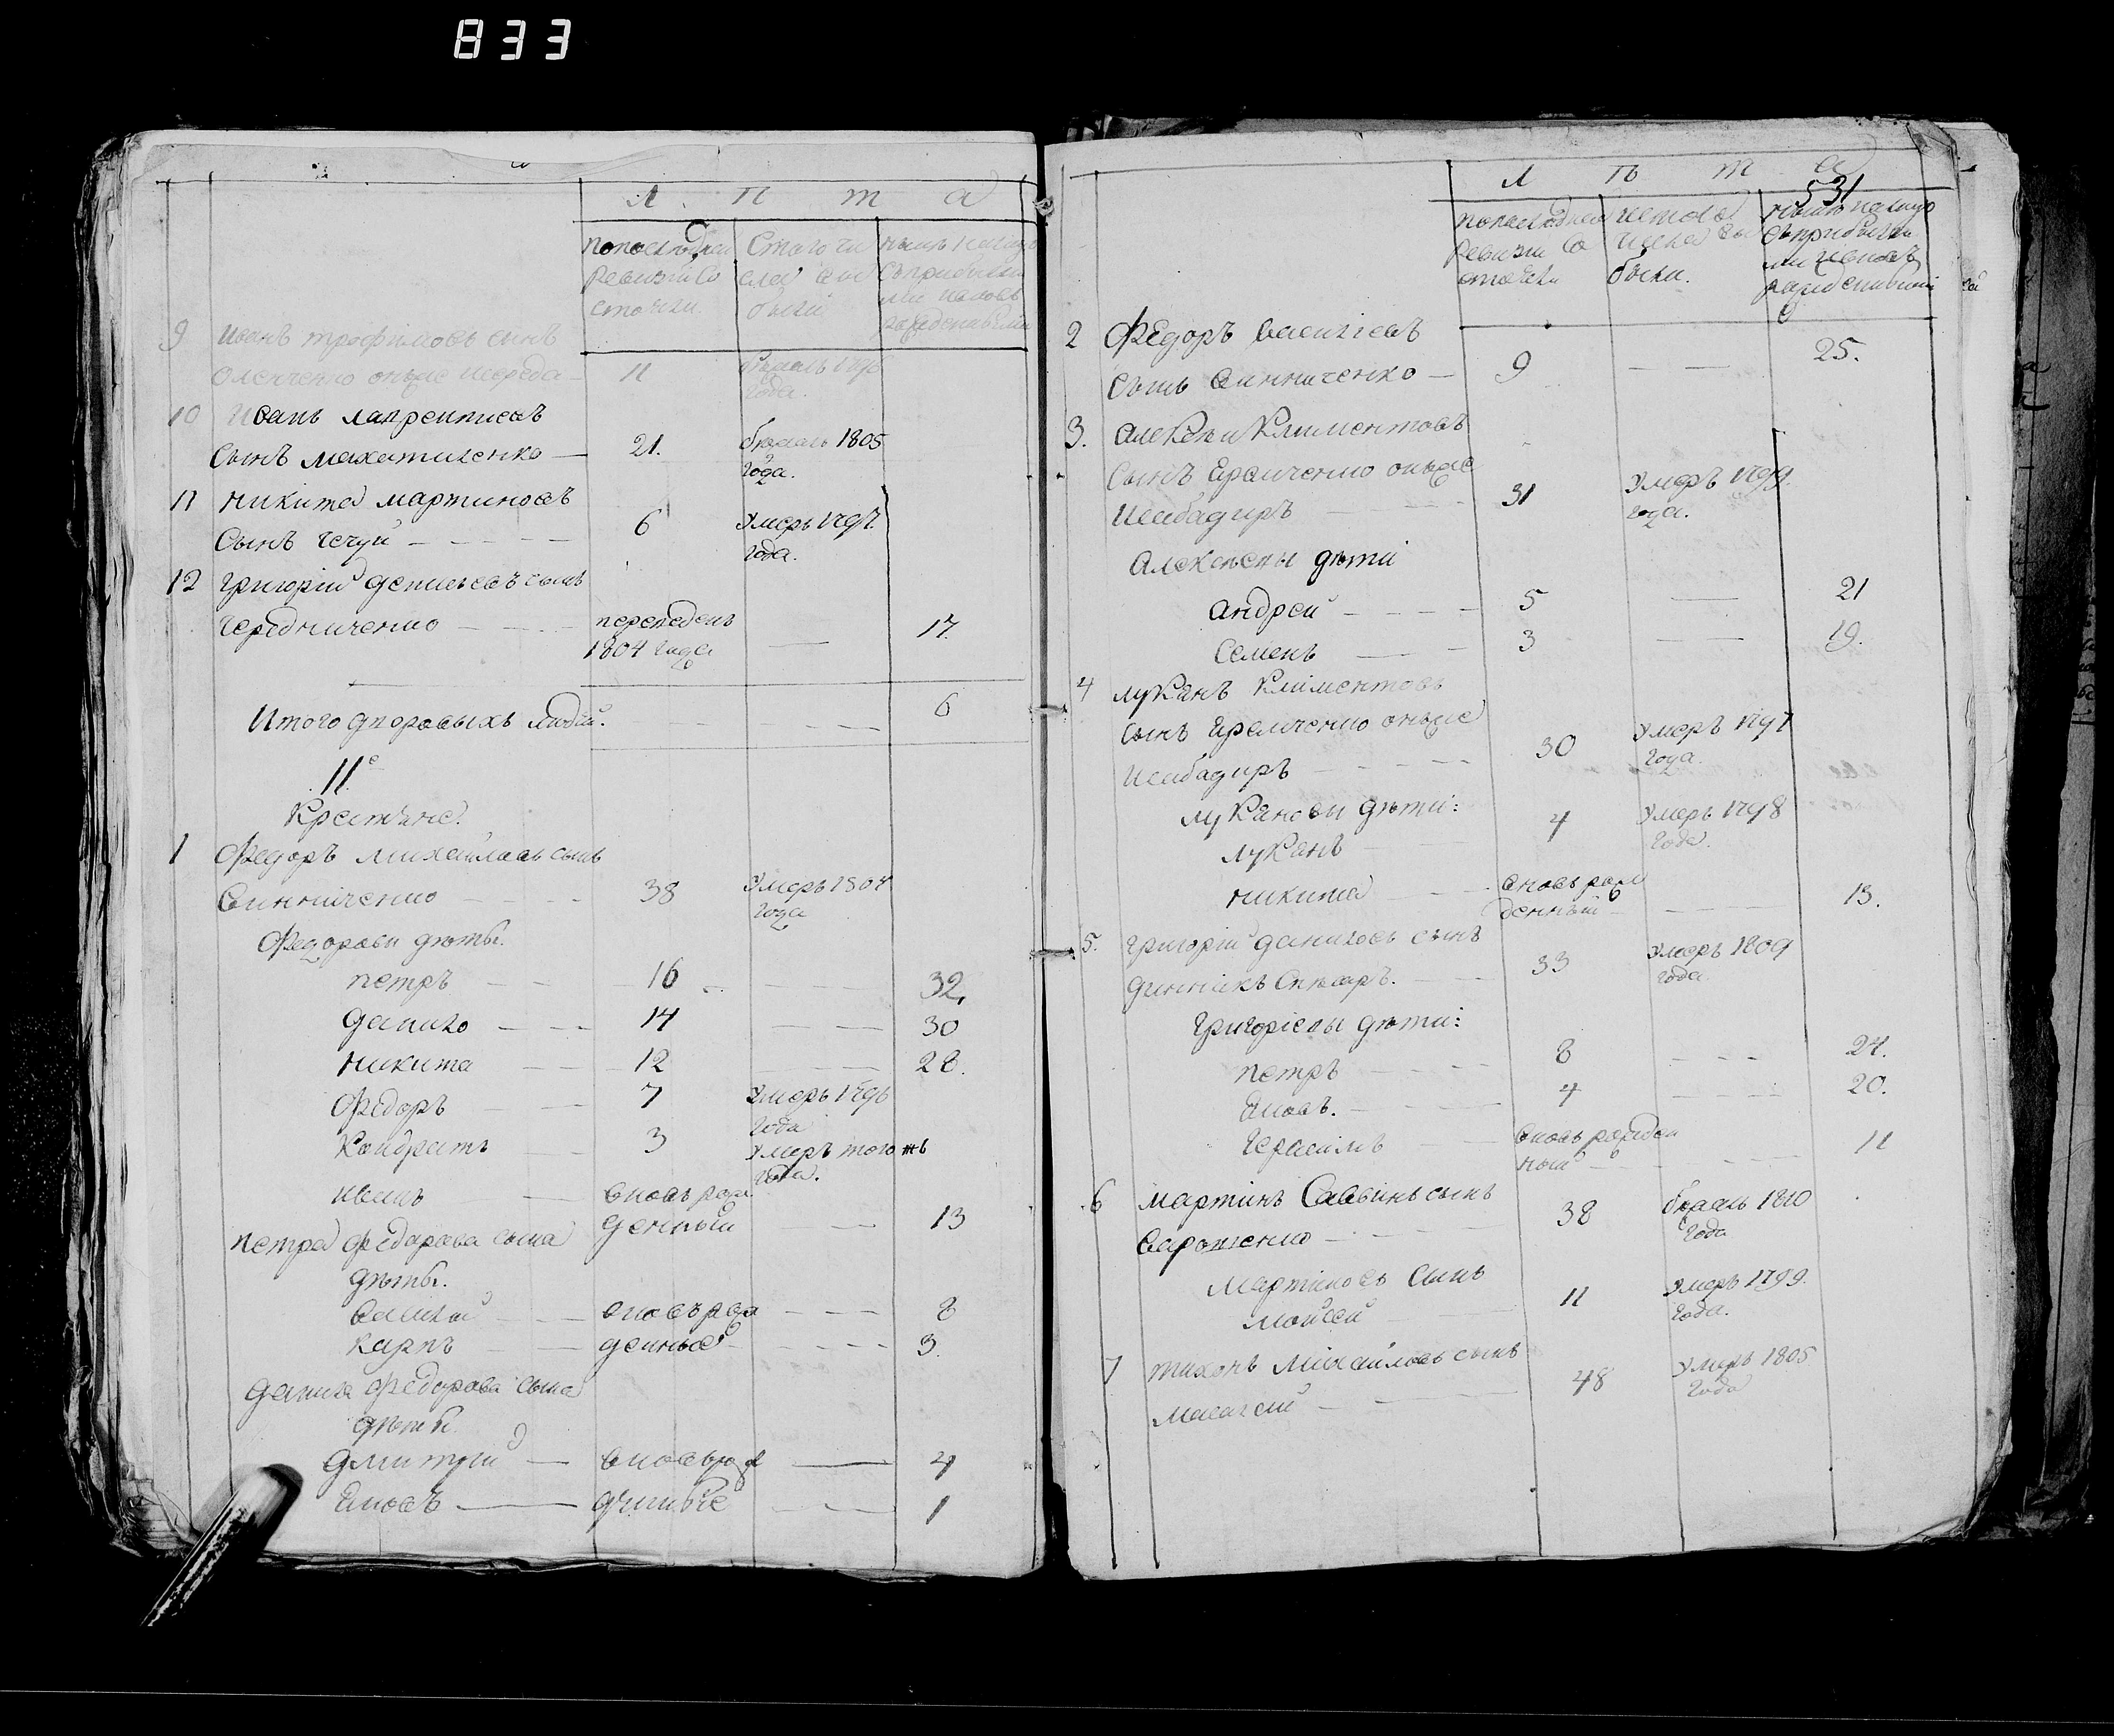 833
Л Ѣ т а
попоследней
ревизіи со
стояли.
Стого чи
сла вы
были
нынѣ налицо
съприбылы
ми иновь
рожденными
9 Иванъ трофимовъ сынъ
Оленченко онъже Середа — 11 бѣжалъ 1796
года.
10 Иванъ лаврентиевъ
Сынъ — 21. бѣжалъ 1805
года.
11 Никита мартиновъ
Сынъ чечуй — 6 Умеръ 1797.
года.
12 григорій сынъ
Чередниченко — переведенъ
1804 года — 17.
Итого дворовыхъ людей. — 6
II.е
Крестьяне.
1 Федоръ михайловъ сынъ
Винниченко — 38 Умеръ 1804
года
Федорови дѣты.
петръ — 16 — 32.
данило — 14 — 30
никита — 12 — 28.
Федоръ — 7 Умеръ 1796
года
Кондратъ — 3 Умеръ того жъ
года.
иванъ — вновь рож
денный — 13
петра федорова сына
дѣты.
— вновърож — 8
карпъ — денные — 3.
данила федорова сына
дѣты
дмитрій — вновьрож — 4
Яковъ — денные — 1
Л Ѣ т а
531
попоследней
ревизіи со
стояли
истого
числа вы
были.
нынѣ налицо
съприбылы
ми иновь
рожденными
2 Федоръ василіевъ
Сынъ Винниченко — 9 — 25.
3. Алексѣй Климентовъ
Сынъ Яременко онъже
— 31 Умеръ 1799.
года.
Алексѣевы дѣти
Андрей — 5 — 21
Семенъ — 3 — 19.
4 лукянъ Климентовъ
сынъ Яременко онъже
— 30 Умеръ 1797
года.
лукяновы дѣти:
лукянъ — 4 Умеръ 1798
года.
никита — вновь рож
денный — 13.
5. григорій даниловъ сынъ
— 33 Умеръ 1809
года.
григоріевы дѣти:
петръ — 8 — 24.
Яковъ. — 4 — 20.
Герасимъ — вновь рожден
ный — 11
6 мартинъ Саввинъ сынъ
— 38 бѣжалъ 1810
года
Мартиновъ сынъ
мойсей — 11 Умеръ 1799.
года.
7 тихонъ михайловъ сынъ
— 48 Умеръ 1805
года